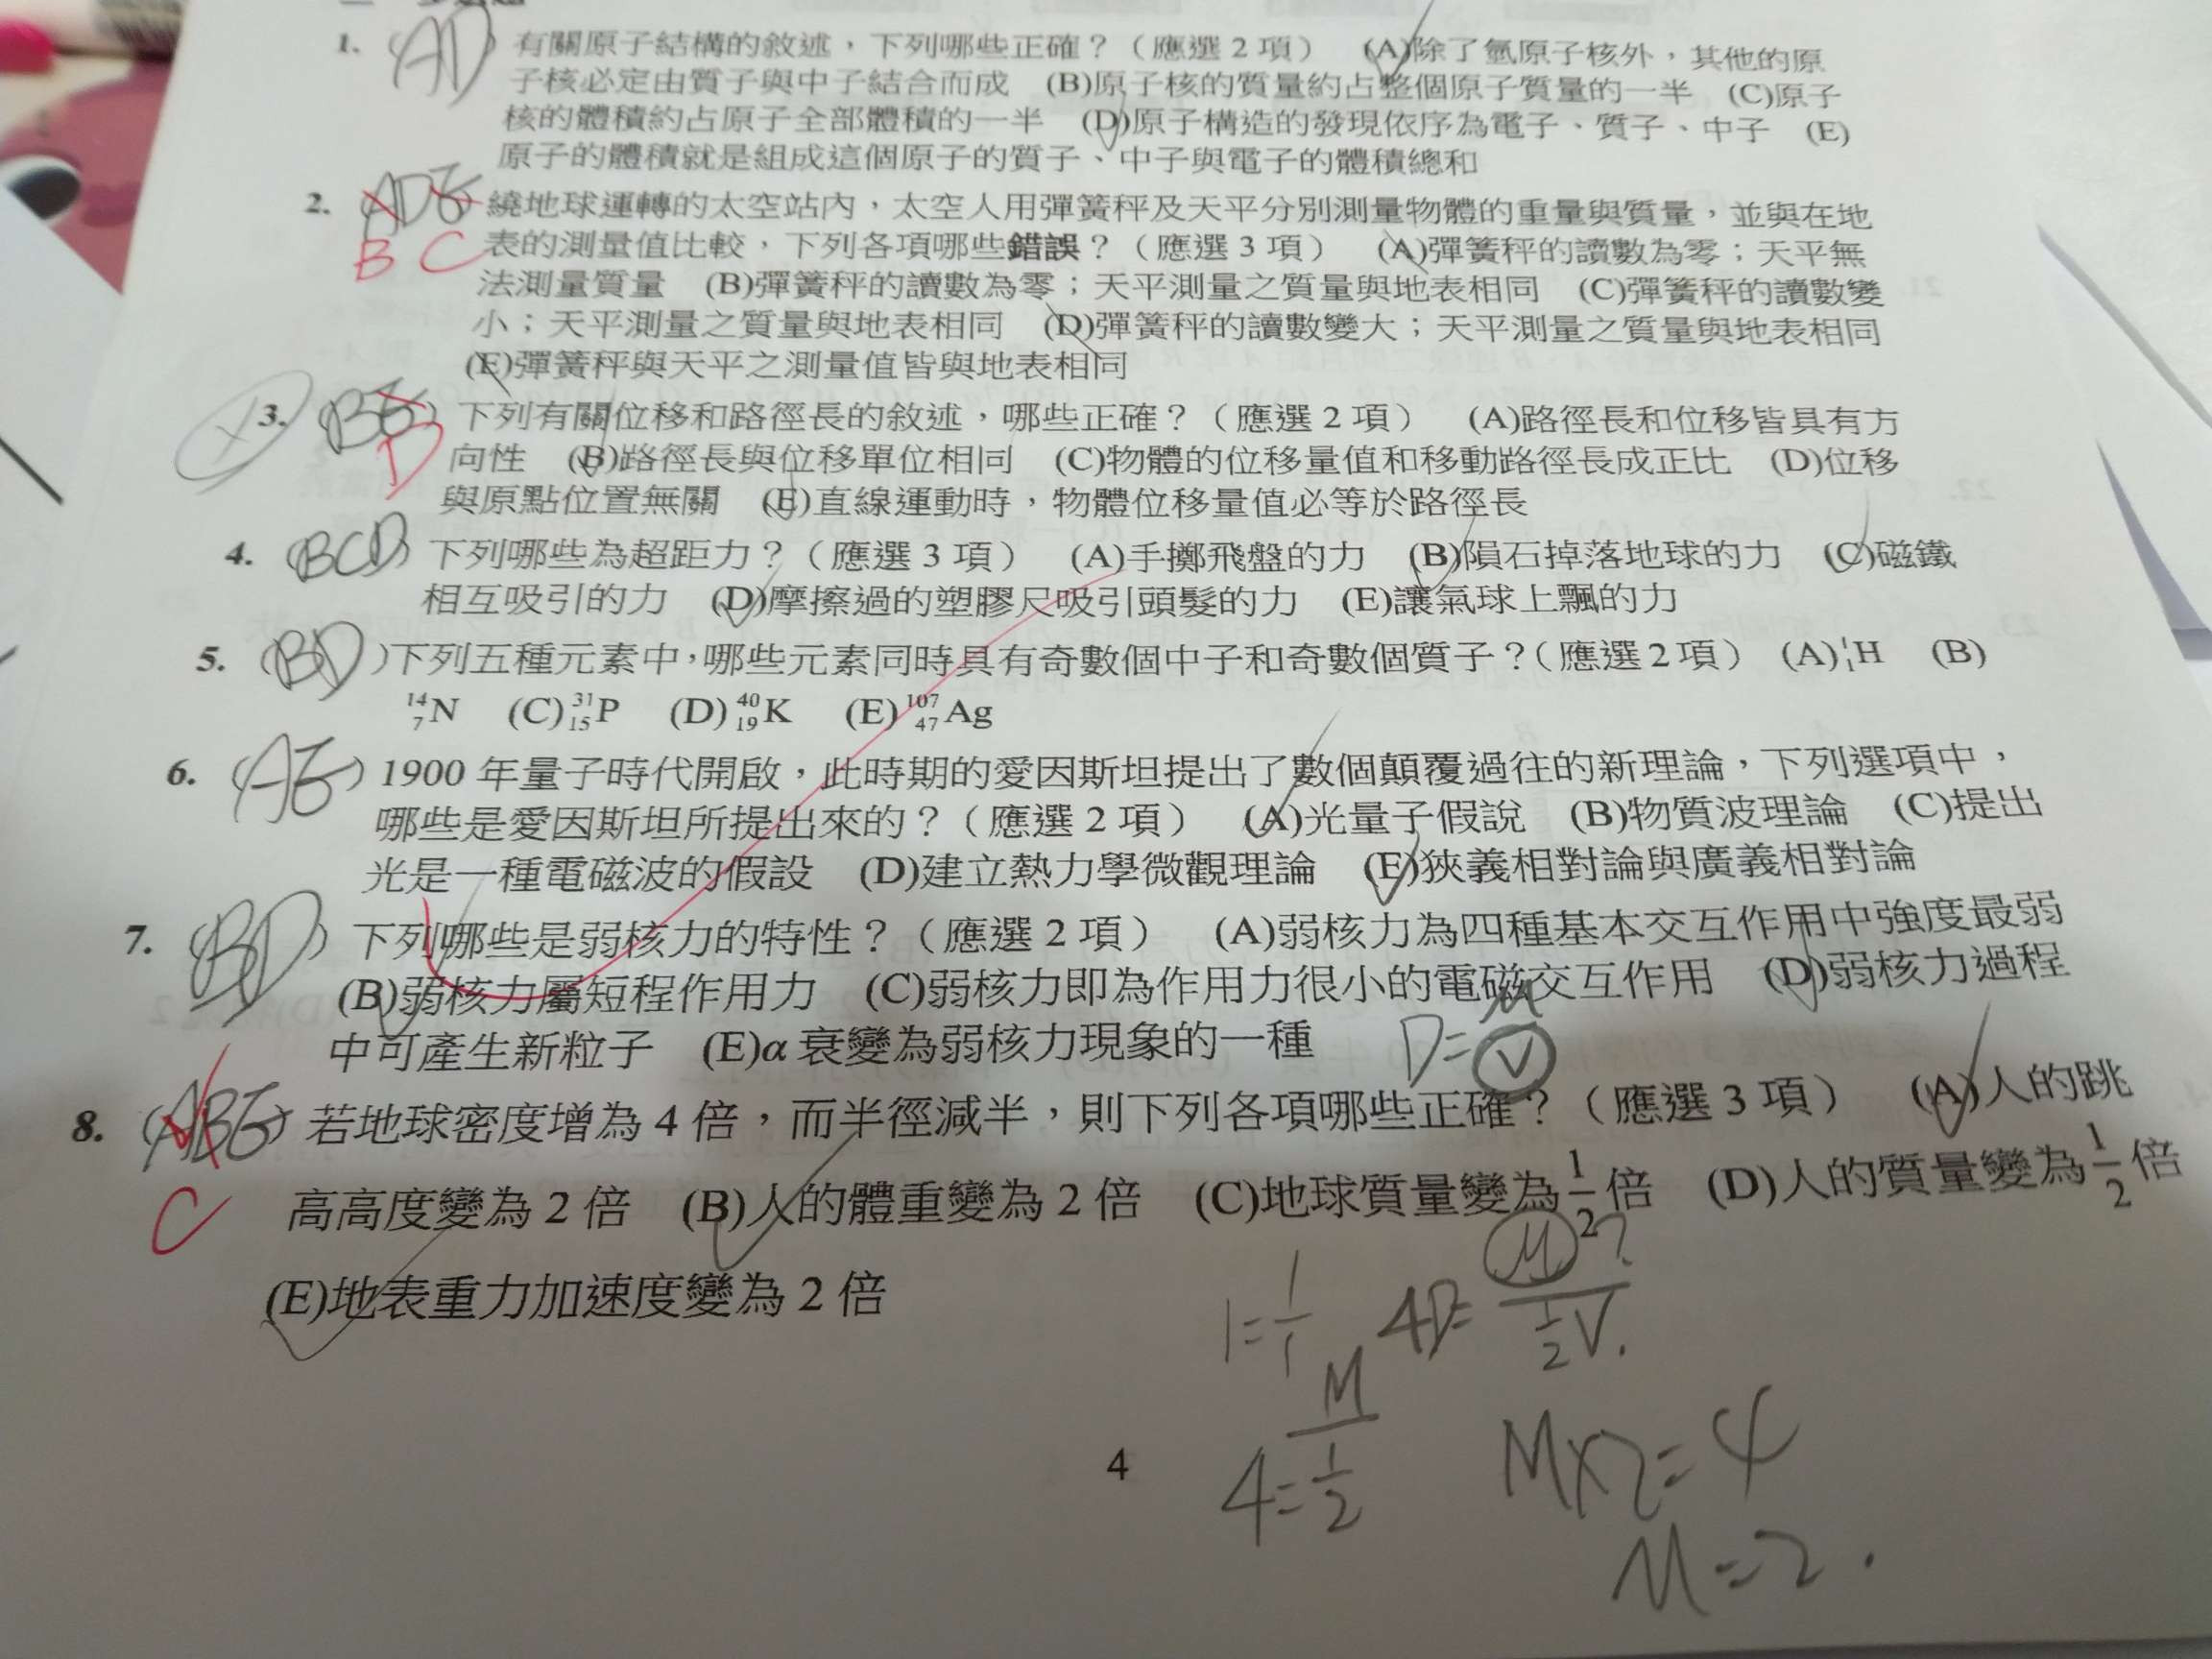 1. (AD) 有關原子結構的敘述，下列哪些正確？（應選2項） (A)除了氫原子核外，其他的原
子核必定由質子與中子結合而成 (B)原子核的質量約占整個原子質量的一半 (C)原子
核的體積約占原子全部體積的一半 (D)原子構造的發現依序為電子、質子、中子 (E)
原子的體積就是組成這個原子的質子、中子與電子的體積總和
2. ADE 繞地球運轉的太空站內，太空人用彈簧秤及天平分別測量物體的重量與質量，並與在地
B C 表的測量值比較，下列各項哪些錯誤？（應選3項） (A)彈簧秤的讀數為零；天平無
法測量質量 (B)彈簧秤的讀數為零；天平測量之質量與地表相同 (C)彈簧秤的讀數變
小；天平測量之質量與地表相同 (D)彈簧秤的讀數變大；天平測量之質量與地表相同
(E)彈簧秤與天平之測量值皆與地表相同
3. (BE) 下列有關位移和路徑長的敘述，哪些正確？（應選2項） (A)路徑長和位移皆具有方
D 向性 (B)路徑長與位移單位相同 (C)物體的位移量值和移動路徑長成正比 (D)位移
與原點位置無關 (E)直線運動時，物體位移量值必等於路徑長
4. (BCD) 下列哪些為超距力？（應選3項） (A)手擲飛盤的力 (B)隕石掉落地球的力 (C)磁鐵
相互吸引的力 (D)摩擦過的塑膠尺吸引頭髮的力 (E)讓氣球上飄的力
5. (BD) 下列五種元素中，哪些元素同時具有奇數個中子和奇數個質子？（應選2項） (A)¹₁H (B)
¹⁴₇N (C)³¹₁₅P (D)⁴⁰₁₉K (E)¹⁰⁷₄₇Ag
6. (AE) 1900年量子時代開啟，此時期的愛因斯坦提出了數個顛覆過往的新理論，下列選項中，
哪些是愛因斯坦所提出來的？（應選2項） (A)光量子假說 (B)物質波理論 (C)提出
光是一種電磁波的假設 (D)建立熱力學微觀理論 (E)狹義相對論與廣義相對論
7. (BD) 下列哪些是弱核力的特性？（應選2項） (A)弱核力為四種基本交互作用中強度最弱
(B)弱核力屬短程作用力 (C)弱核力即為作用力很小的電磁交互作用 (D)弱核力過程
中可產生新粒子 (E)α衰變為弱核力現象的一種
D=M/V
8. (ABE) 若地球密度增為4倍，而半徑減半，則下列各項哪些正確？（應選3項） (A)人的跳
C 高高度變為2倍 (B)人的體重變為2倍 (C)地球質量變為1/2倍 (D)人的質量變為1/2倍
(E)地表重力加速度變為2倍
1=1/1 4D=M?/½V.
4=M/½ M×2=4
M=2.
4